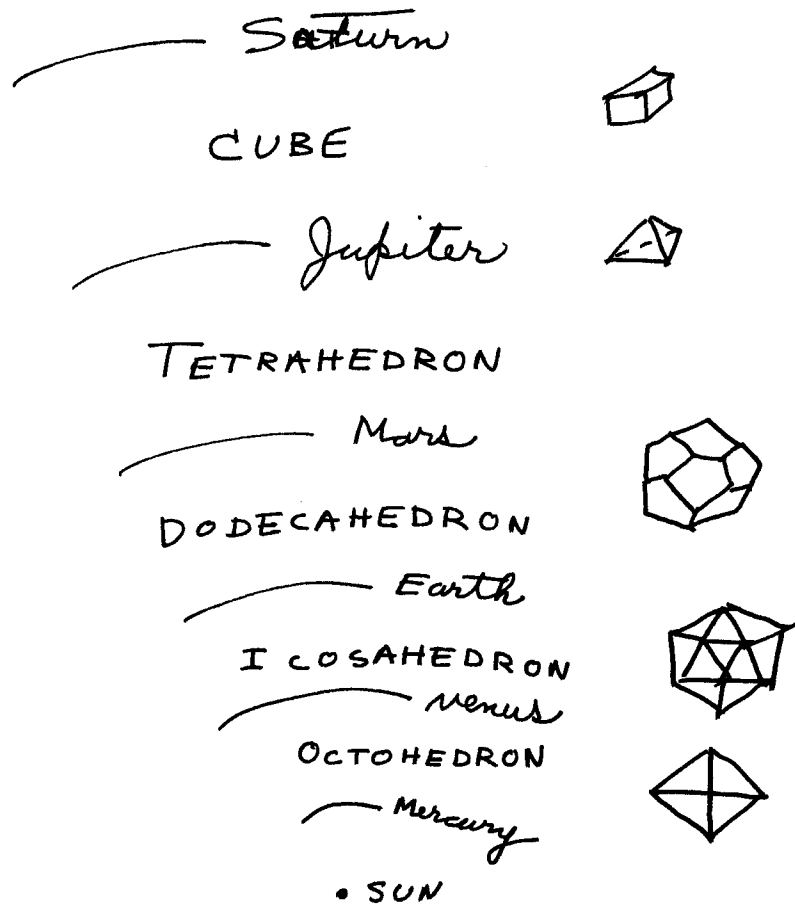 Saturn
CUBE
Jupiter
TETRAHEDRON
Mars
DODECAHEDRON
Earth
ICOSAHEDRON
Venus
OCTOHEDRON
Mercury
• SUN